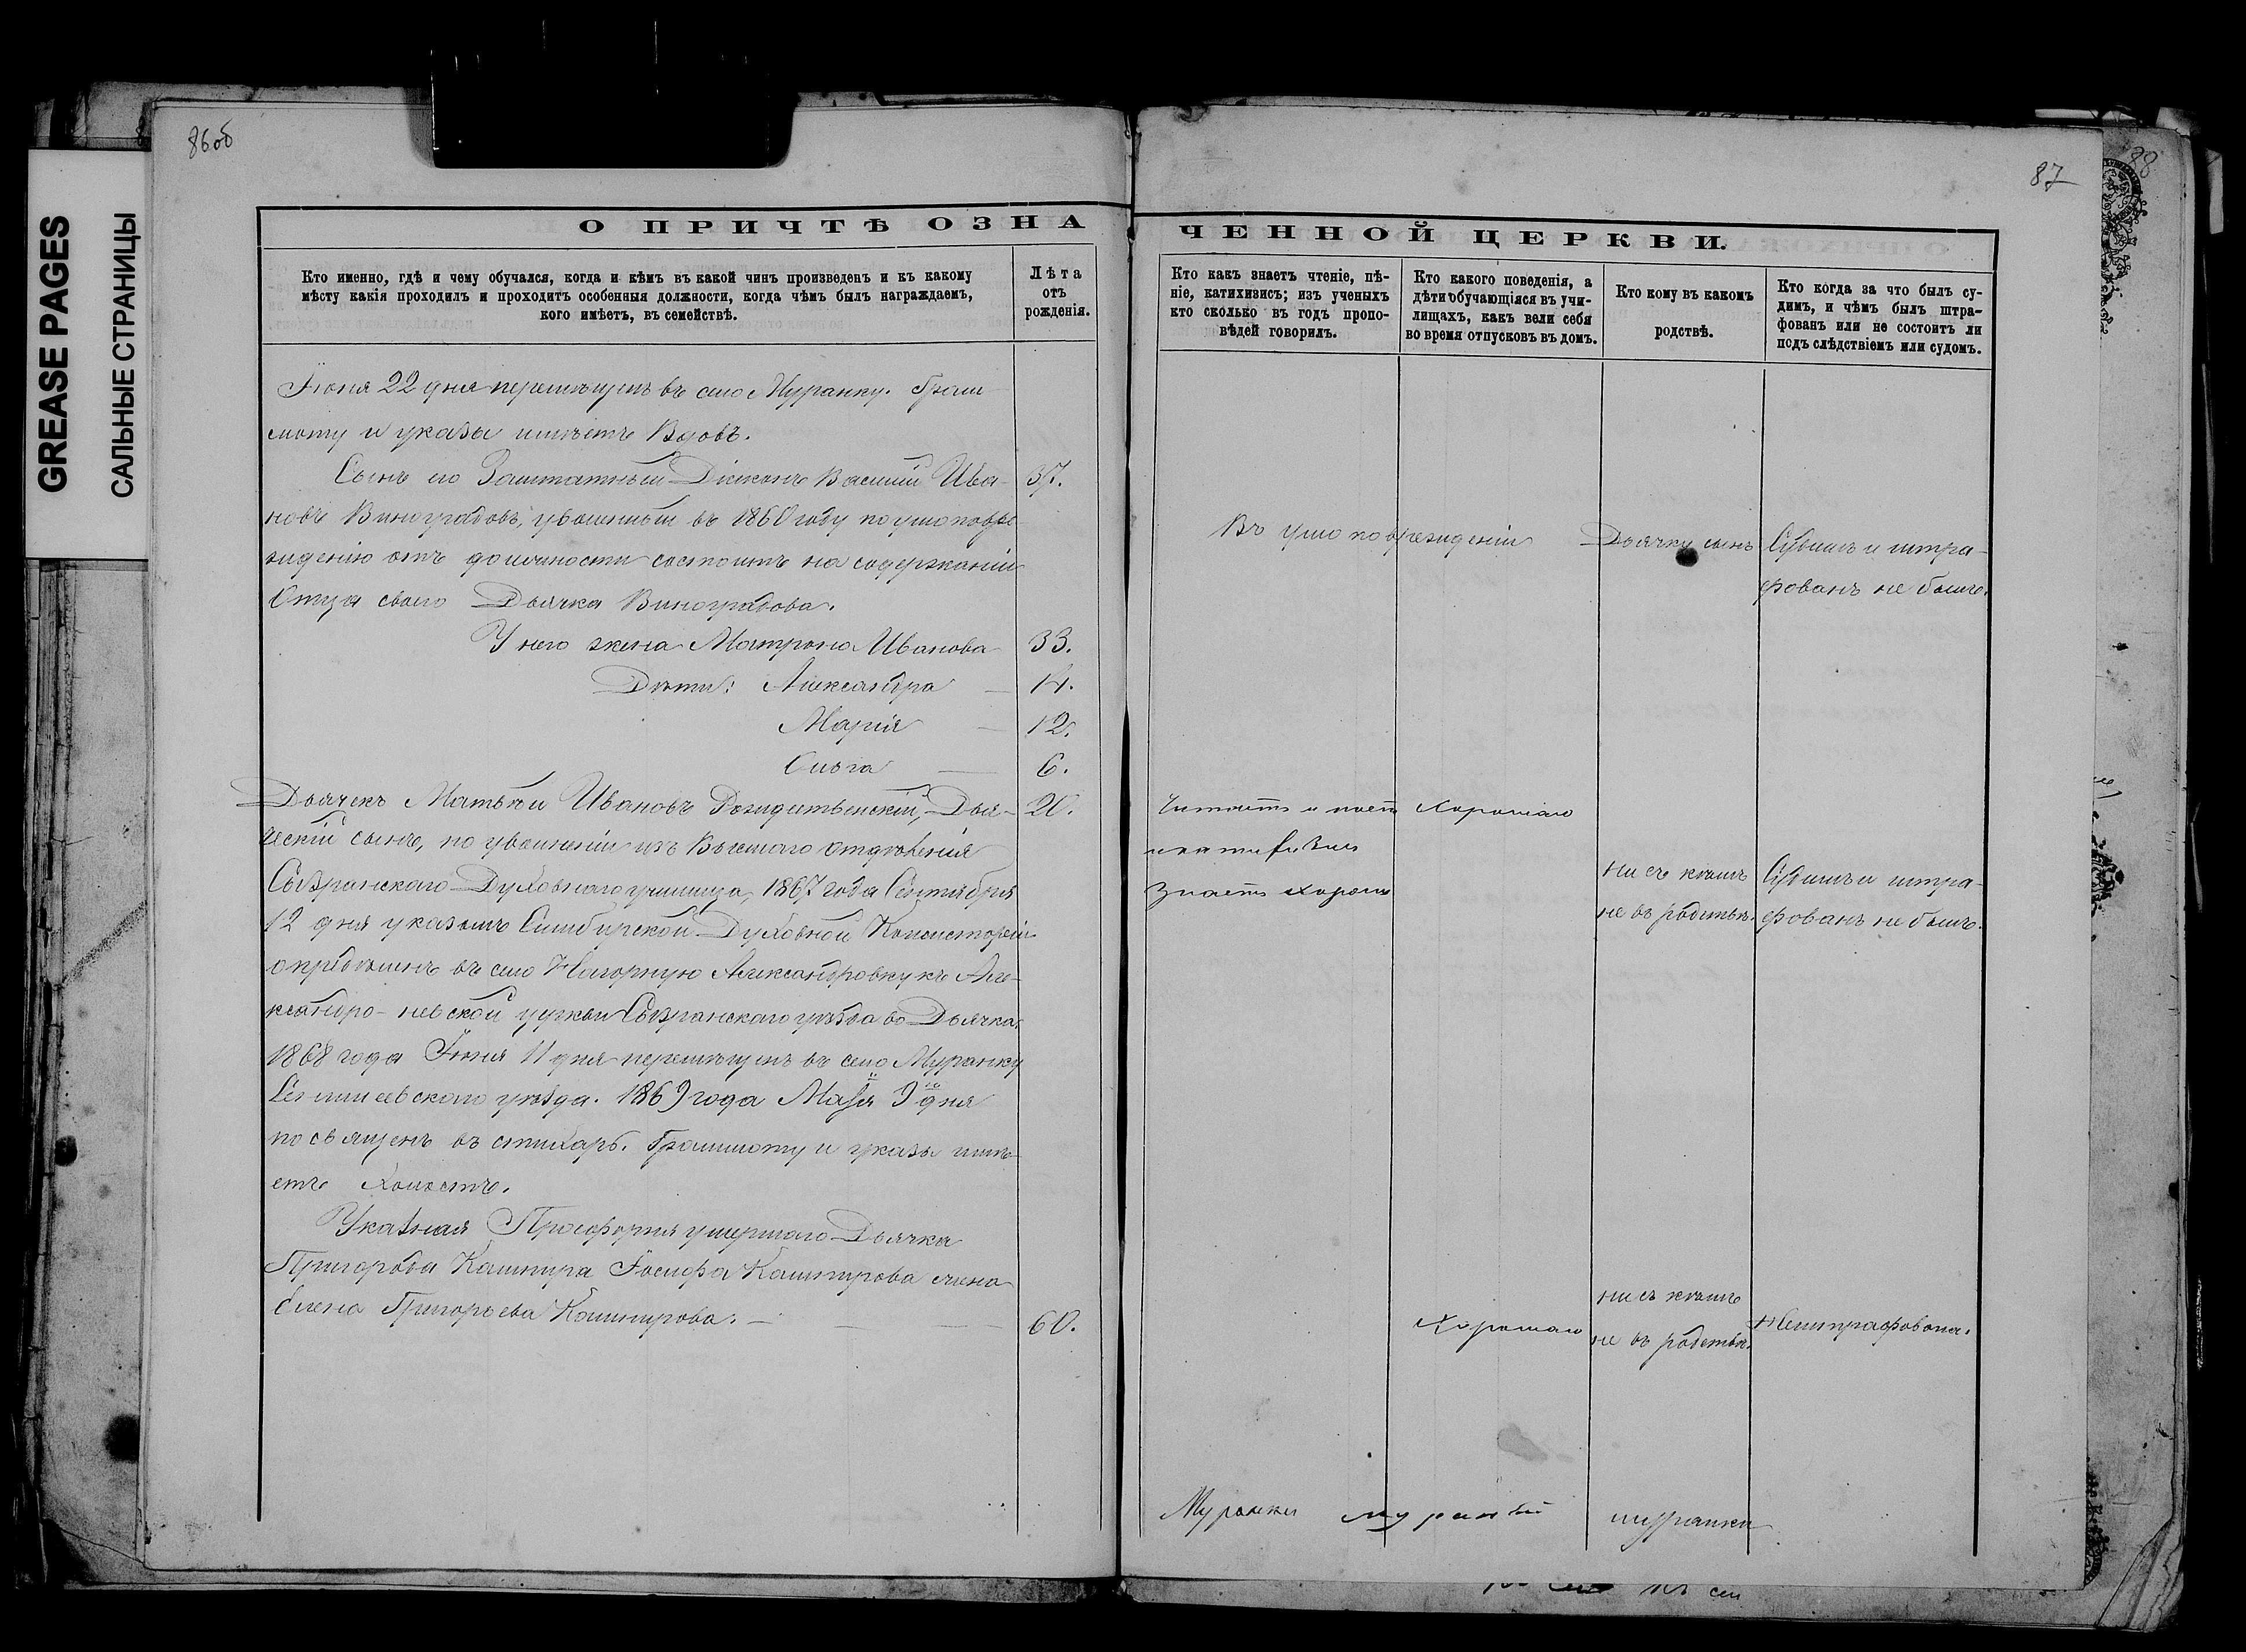 GREASE PAGES
САЛЬНЫЕ СТРАНИЦЫ
86об
О ПРИЧТѢ ОЗНА
Кто именно, гдѣ и чему обучался, когда и кѣмъ въ какой чинъ произведенъ и къ какому
мѣсту какія проходилъ и проходитъ особенныя должности, когда чѣмъ былъ награждаемъ,
кого имѣетъ, въ семействѣ.
Лѣта
отъ
рожденія.
Іюня 22 дня перемѣщенъ въ село Муранку. Грам-
моту и указы имѣетъ Вдовъ.
Сынъ его Заштатный Діаконъ Василій Ива- 37.
новъ Виноградовъ, уволенный въ 1860 году по умоповре-
жденію отъ должности состоитъ на содержаніи
Отца своего Дьячка Виноградова.
У него жена Матрона Иванова 33.
Дѣти: Александра — 14.
Марія — 12.
Ольга — 6.
Дьячекъ Матвѣй Ивановъ Рождественскій, Дья- 20.
ческій сынъ, по увольненіи изъ Высшаго отдѣленія
Сызранскаго Духовнаго училища, 1867 года Сентября
12 дня указомъ Симбирской Духовной Консисторіи
опредѣленъ въ село Нагорную Александровку къ Але-
ксандро-невской церкви Сызранскаго уѣзда во Дьячка.
1868 года Іюня 11 дня перемѣщенъ въ село Муранку
Сенгилеевскаго уѣзда. 1869 года Маія 9го дня
посвященъ въ стихарь. Граммоту и указы имѣ-
етъ Холостъ.
Указная Просфорня умершаго Дьячка
Пригорода Кашпира Іосифа Кашпирова жена
Елена Григорьева Кашпирова. — — — 60.
87
88
ЧЕННОЙ ЦЕРКВИ.
Кто какъ знаетъ чтеніе, пѣ-
ніе, катихизисъ; изъ ученыхъ
кто сколько въ годъ пропо-
вѣдей говорилъ.
Кто какого поведенія, а
дѣти обучающіяся въ учи-
лищахъ, какъ вели себя
во время отпусковъ въ домъ.
Кто кому въ какомъ
родствѣ.
Кто когда за что былъ су-
димъ, и чѣмъ былъ штра-
фованъ или не состоитъ ли
подъ слѣдствіемъ или судомъ.
Въ умоповрежденіи Дьячку сынъ Судимъ и штра-
фованъ не былъ.
Читаетъ и поетъ Хорошаго
и катихизисъ
знаетъ хорошо
ни съ кѣмъ
не въ родствѣ.
Судимъ и штра-
фованъ не былъ.
Хорошаго
ни съ кѣмъ
не въ родствѣ.
Не штрафована.
Муранки муранки муранки